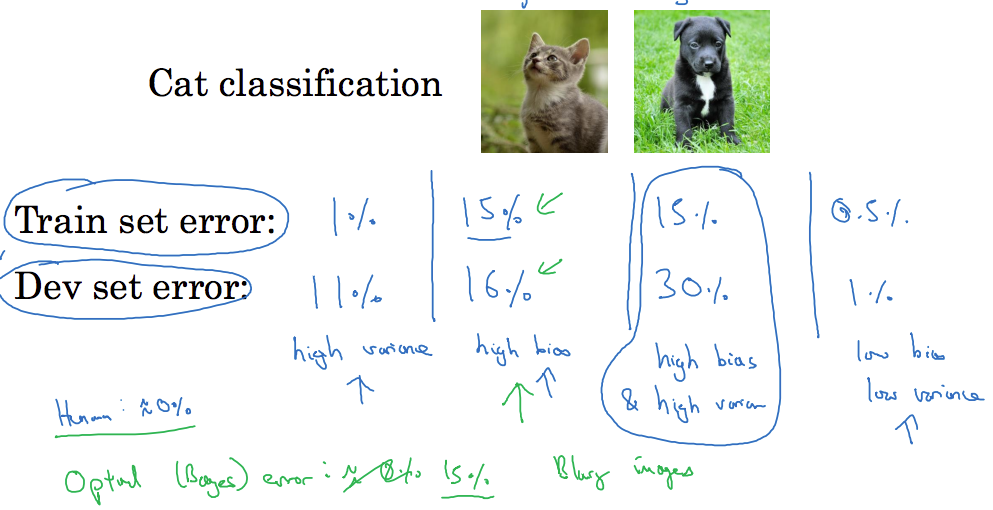 Cat classification
Train set error: 1% 15% 15% 0.5%
Dev set error: 11% 16% 30% 1%
high variance high bias high bias low bias
& high varian low variance
Human: ≈0%
Optimal (Bayes) error: ≈ 0% 15% Blurry images